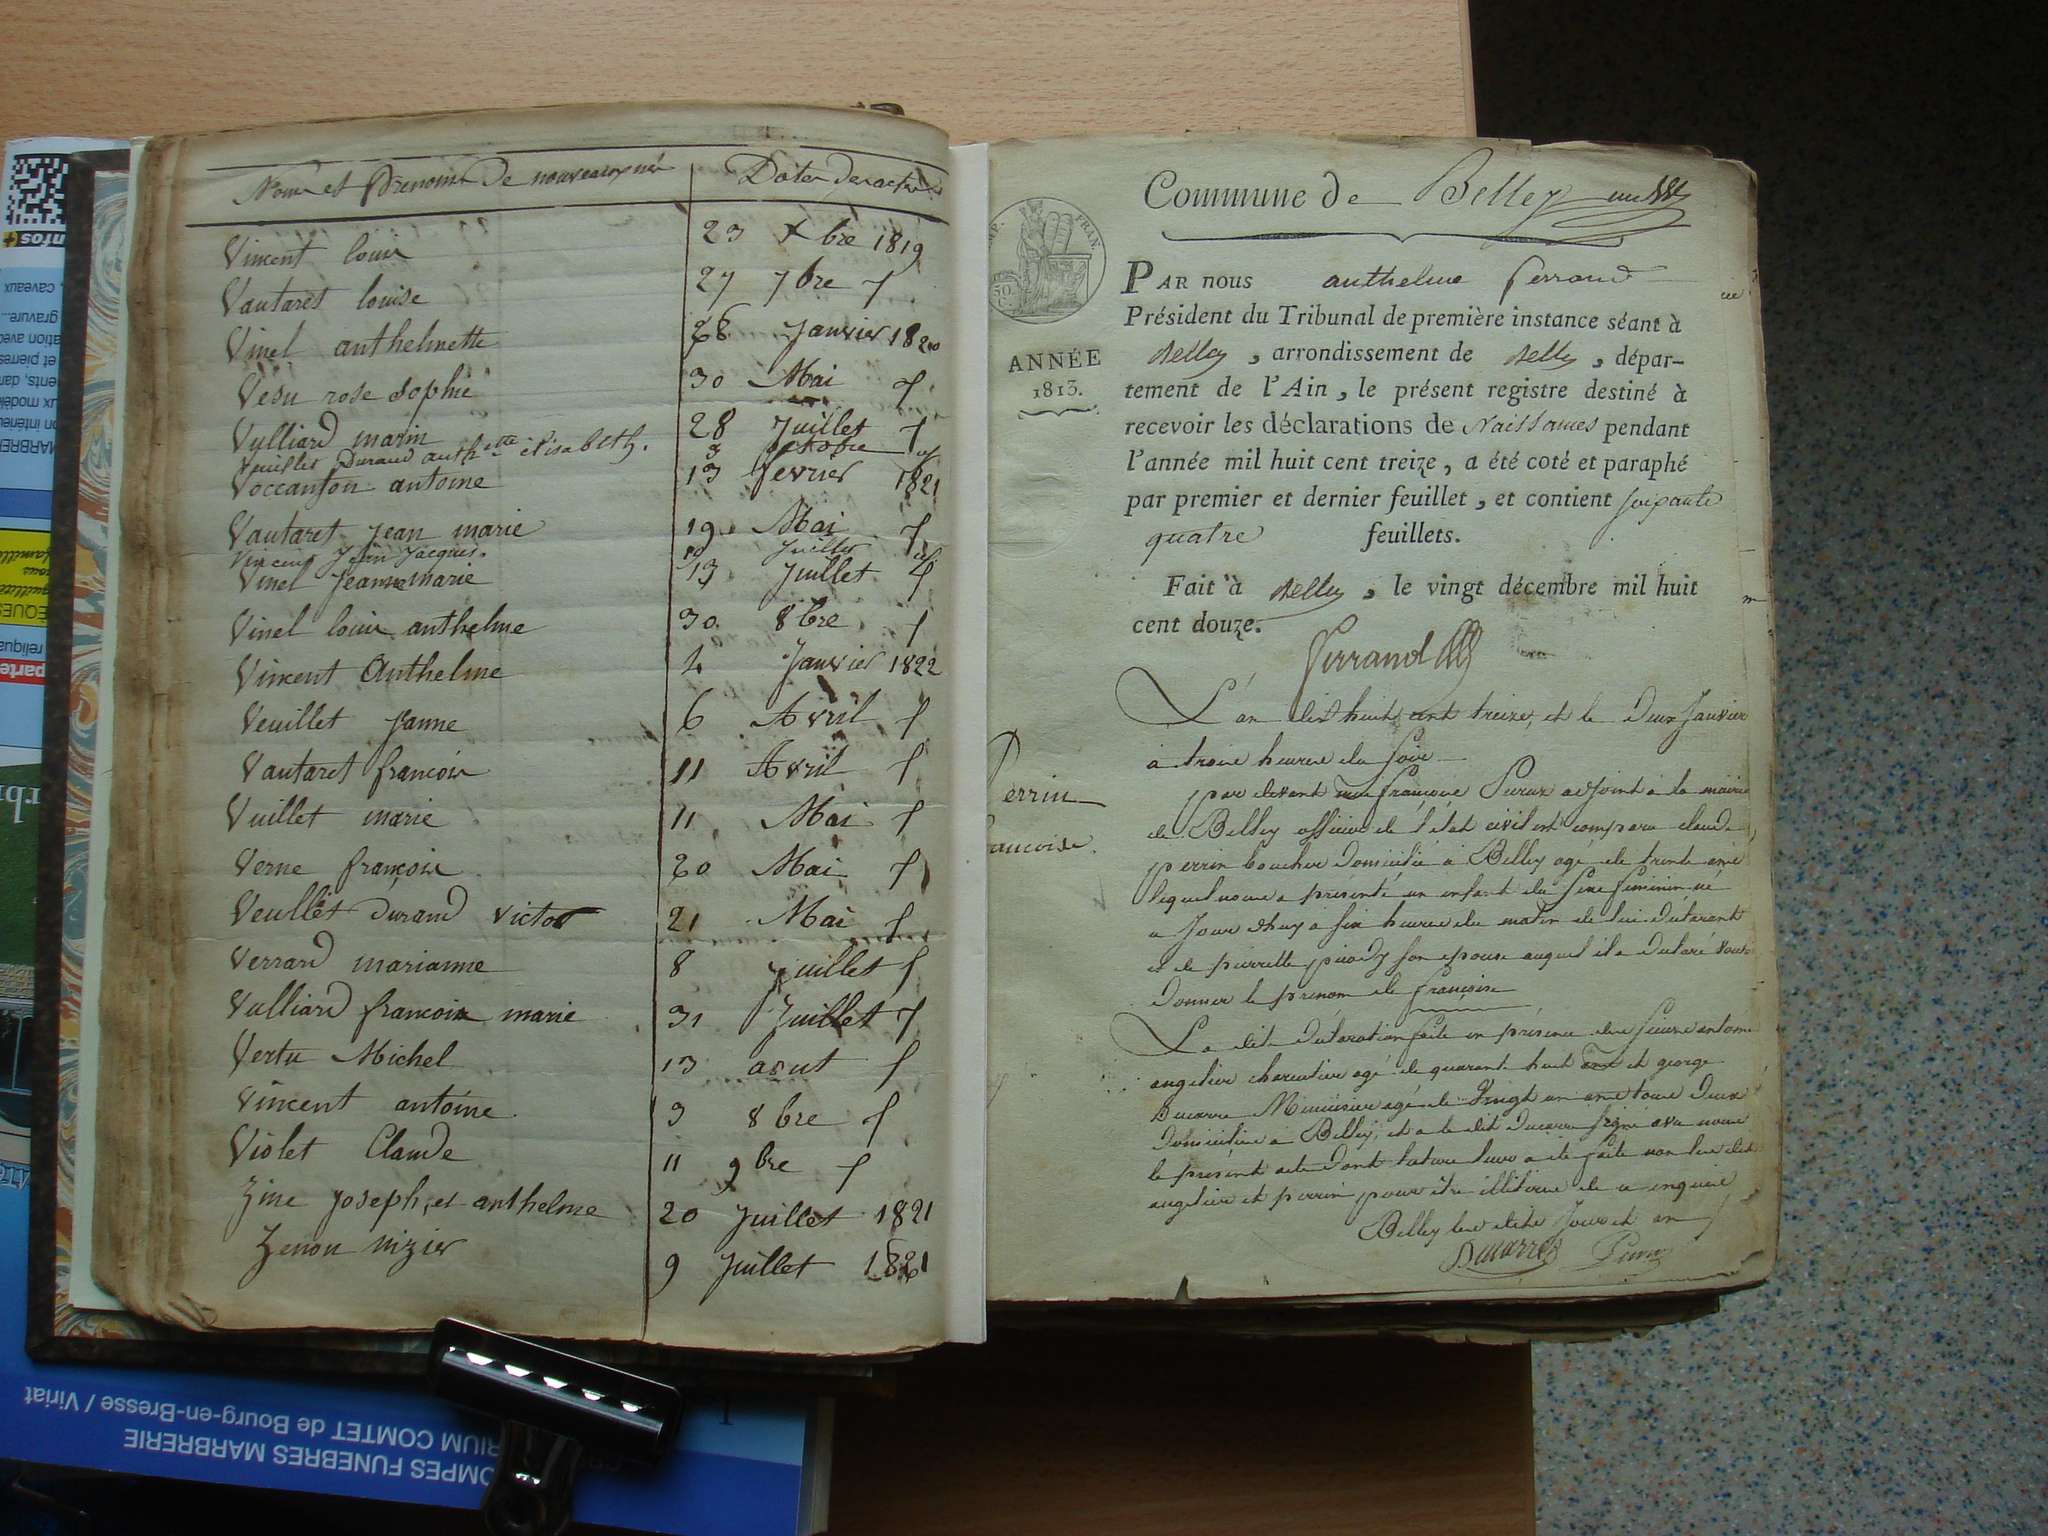 Noms et Prenoms De nouveaux nés Dates des actes
Vincent louis 23 Xbre 1819
Vautaret louise 27 7bre
Vinel anthelmette 28 Janvier 1820
Vesu rose Sophie 30 Mai
Vulliard marin 28 Juillet
Veuillet Durand anth.tte élisabeth. 3 octobre
Voccanson antoine 13 fevrier 1821
Vautaret jean marie 19 Mai
Jean Jacques. Juillet
Vinel Jeanne marie 13 Juillet
Vinel louis anthelme 30 8bre
Vincent Anthelme 4 Janvier 1822
Veuillet janne 6 Avril
Vautaret françois 11 Avril
Vuillet marie 11 Mai
Verne françois 20 Mai
Veullet Durand victor 21 Mai
Verrard marianne 8 juillet
Vulliard françois marie 31 Juillet
Vertu Michel 13 aout
Vincent antoine 3 8bre
Violet Claude 11 9bre
Zine joseph, et anthelme 20 Juillet 1821
Zenon nizier 9 Juillet 1821
Commune de Belley
IMP. FRAN.
50
C.
ANNÉE
1813.
PAR nous anthelme ferrand
Président du Tribunal de première instance séant à
Belley, arrondissement de Belley, dépar-
tement de l'Ain, le présent registre destiné à
recevoir les déclarations de Naissances pendant
l'année mil huit cent treize, a été coté et paraphé
par premier et dernier feuillet, et contient soixante
quatre feuillets.
Fait à Belley, le vingt décembre mil huit
cent douze.
ferrand
Perrin
francoise.
L'an dix huit cent treize, et le deux Janvier
à trois heures du soir
par devant nous françois adjoint à la mairie
de Belley officier de l'état civil est comparu claude
perrin boucher domicilié à Belley agé de trente ans
lequel nous a présenté un enfant du sexe féminin né
ce jour d'huy à six heures du matin de lui déclarant
et de pierrette son épouse auquel il a déclaré vouloir
donner le prenom de françoise
La dite déclaration faite en présence de antoine
angelier charcutier agé de quarante huit ans et george
Ducarre Menuisier agé de vingt un ans tous deux
domiciliés à Belley, et a le dit Ducarre signé avec nous
le présent acte dont lecture leur a été faite non les dits
angelier et perrin pour être illiterés de ce enquis
Belley les dits jour et an
Ducarre
OMPES FUNEBRES MARBRERIE
RIUM COMTET de Bourg-en-Bresse / Viriat
nfos+
caveaux
gravure...
ation avec
et pierres
ents, dan
ux modèle
on intérieu
MARBRER
famille
vous
EQUES
reliqua
parte